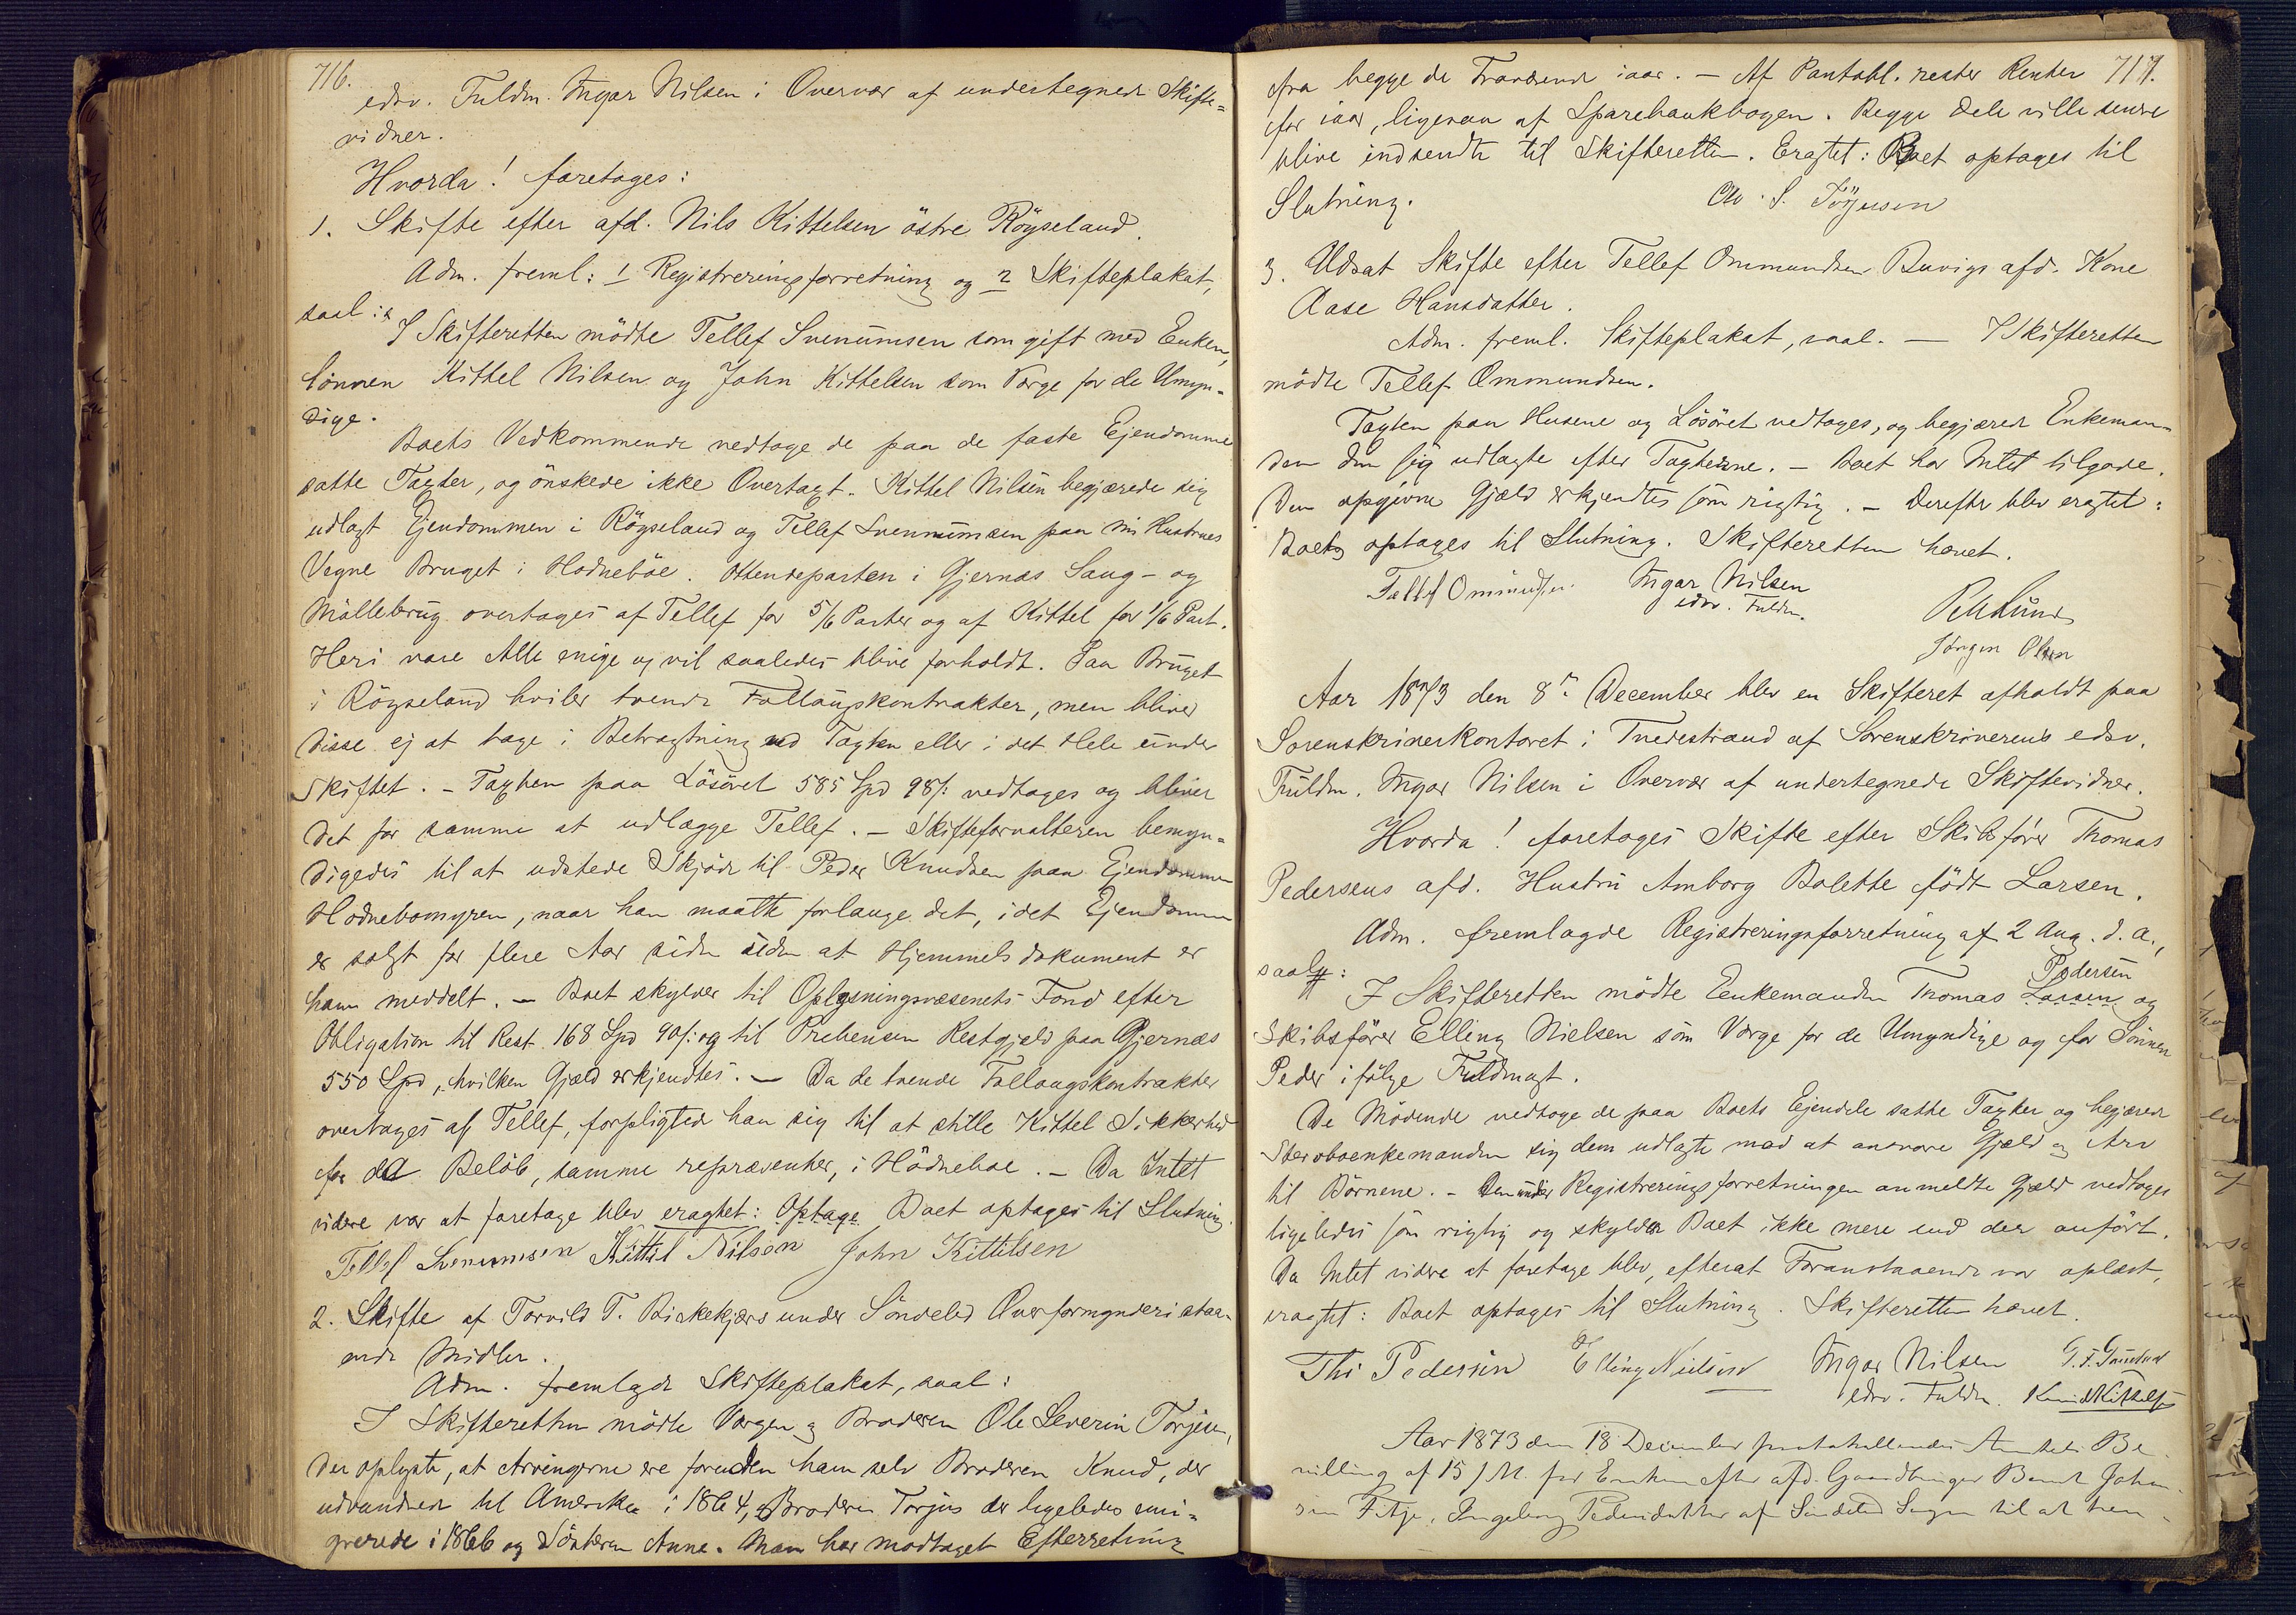 716.
edsv. Fuldm. Ingar Nilsen i Overvær af undertegnede Skifte=
vidner.
Hvorda! foretages:
1. Skifte efter afd. Nils Kittelsen östre Röyseland.
Adm. freml: 1 Registreringsforretning og 2 Skifteplakat,
saal:
I Skifteretten mödte Tellef Svenumsen som gift med Enken,
Sönnen Kittel Nilsen og John Kittelsen som Værge for de Umyn=
dige.
Boets Vedkommende vedtoge de paa de faste Ejendomme
satte Taxter, og önskede ikke Overtaxt. Kittel Nilsen begjærede sig
udlagt Ejendommen i Röyseland og Tellef Svennumsen paa sin Hustrues
Vegne Bruget i Hodneböe. Ottendeparten i Gjernæs Saug- og
Möllebrug overtages af Tellef for 5/6 Parter og af Kittel for 1/6 Part.
Heri vare Alle enige og vil saaledes blive forholdt. Paa Bruget
i Röyseland hviler tvende Follaugskontrakter, men bliver
disse ej at tage i Betragtning ved Taxten eller i det Hele under
Skiftet. - Taxten paa Lösöret 585 Spd 98 s: vedtages og bliver
det for samme at udlægge Tellef. - Skifteforvalteren bemyn=
digedes til at udstede Skjöde til Peder Knudsen paa Ejendommen
Hodnebomyren, naar han maatte forlange det, idet Ejendommen
er solgt for flere Aar siden uden at Hjemmelsdokument er
ham meddelt. - Boet skylder til Oplysningsvæsenets Fond efter
Obligation til Rest 168 Spd 90 s: og til Prebensen Restgjeld paa Gjernæs
550 Spd, hvilken Gjæld erkjendtes. - Da de tvende Follaugskontrakter
overtages af Tellef, forpligted han sig til at stille Kittel Sikkerhed
for det Belöb, samme repræsenter, i Hödneboe. - Da Intet
videre var at foretage blev eragtet: Optage Boet optages til Slutning.
Tellef Svenumsen Kittil Nilson John Kittilsen
2. Skifte af Torvild T. Birkekjærs under Söndeled Overformynderi staa=
ende Midler.
Adm. fremlagde Skifteplakat, saal:
I Skifteretten mödte Værgen og Broderen Ole Severin Torjusen,
der oplyste, at Arvingerne ere foruden ham selv Broderen Knud, der
udvandrede til Amerika i 1864, Broderen Torjus der ligeledes emi=
grerede i 1866 og Sösteren Anne. Man har modtaget Efterretning
717.
fra begge de Fraværende iaar. - Af Pantobl. rester Renter
for iaar, ligesaa af Sparebankbogen. Begge Dele ville senere
blive indsendte til Skifteretten. Eragtet: Boet optages til
Slutning.
O. S. Törjusen
3. Uldsat Skifte efter Tellef Ommundsen Buvigs afd. Kone
Aase Hansdatter.
Adm. freml. Skifteplakat, saal. - I Skifteretten
mödte Tellef Ommundsen.
Taxten paa Husene og Lösöret vedtoges, og begjærede Enkeman=
den dem sig udlagte efter Taxterne. - Boet har Intet tilgode.
Den opgivne Gjæld erkjendtes som rigtig. - Derefter blev eragtet:
Boet optages til Slutning. Skifteretten hævet.
Tellef Ommundsen Ingar Nilsen
edsv. Fuldm.
Lund
Jörgen Olsen
Aar 1873 den 8de December blev en Skifteret afholdt paa
Sorenskriverkontoret i Tvedestrand af Sorenskriverens edsv.
Fuldm. Ingar Nilsen i Overvær af undertegnede Skiftevidner.
Hvorda! foretages Skifte efter Skibsförer Thomas
Pedersens afd. Hustru Amborg Bolette födt Larsen.
Adm. fremlagde Registreringsforretning af 2 Aug. d. a.,
saal:
I Skifteretten mödte Enkemanden Thomas Larsen Pedersen og
Skibsförer Elling Nielsen som Værge for de Umyndige og for Sönnen
Peder ifölge Fuldmagt.
De Mödende vedtoge de paa Boets Ejendele satte Taxter og begjærede
Sterboenkemanden sig dem udlagte mod at ansvare Gjæld og Arv
til Börnene. - Den under Registreringsforretningen anmeldte Gjæld vedtoges
ligeledes som rigtig og skylder Boet ikke mere end der anfört.
Da Intet videre at foretage blev, efterat Foranstaaende var oplæst,
eragtet: Boet optages til Slutning. Skifteretten hævet.
Ths Pedersen Elling Nielsen Ingar Nilsen
edsv. Fuldm. Knud Kittelsen
Aar 1873 den 18 December protokolleredes Amtets Be=
villing af 15 s. M. for Enken efter afd. Gaardbruger Bernt Johan=
sen Fitje, Ingeborg Pedersdatter af Söndeled Sogn til at hen=